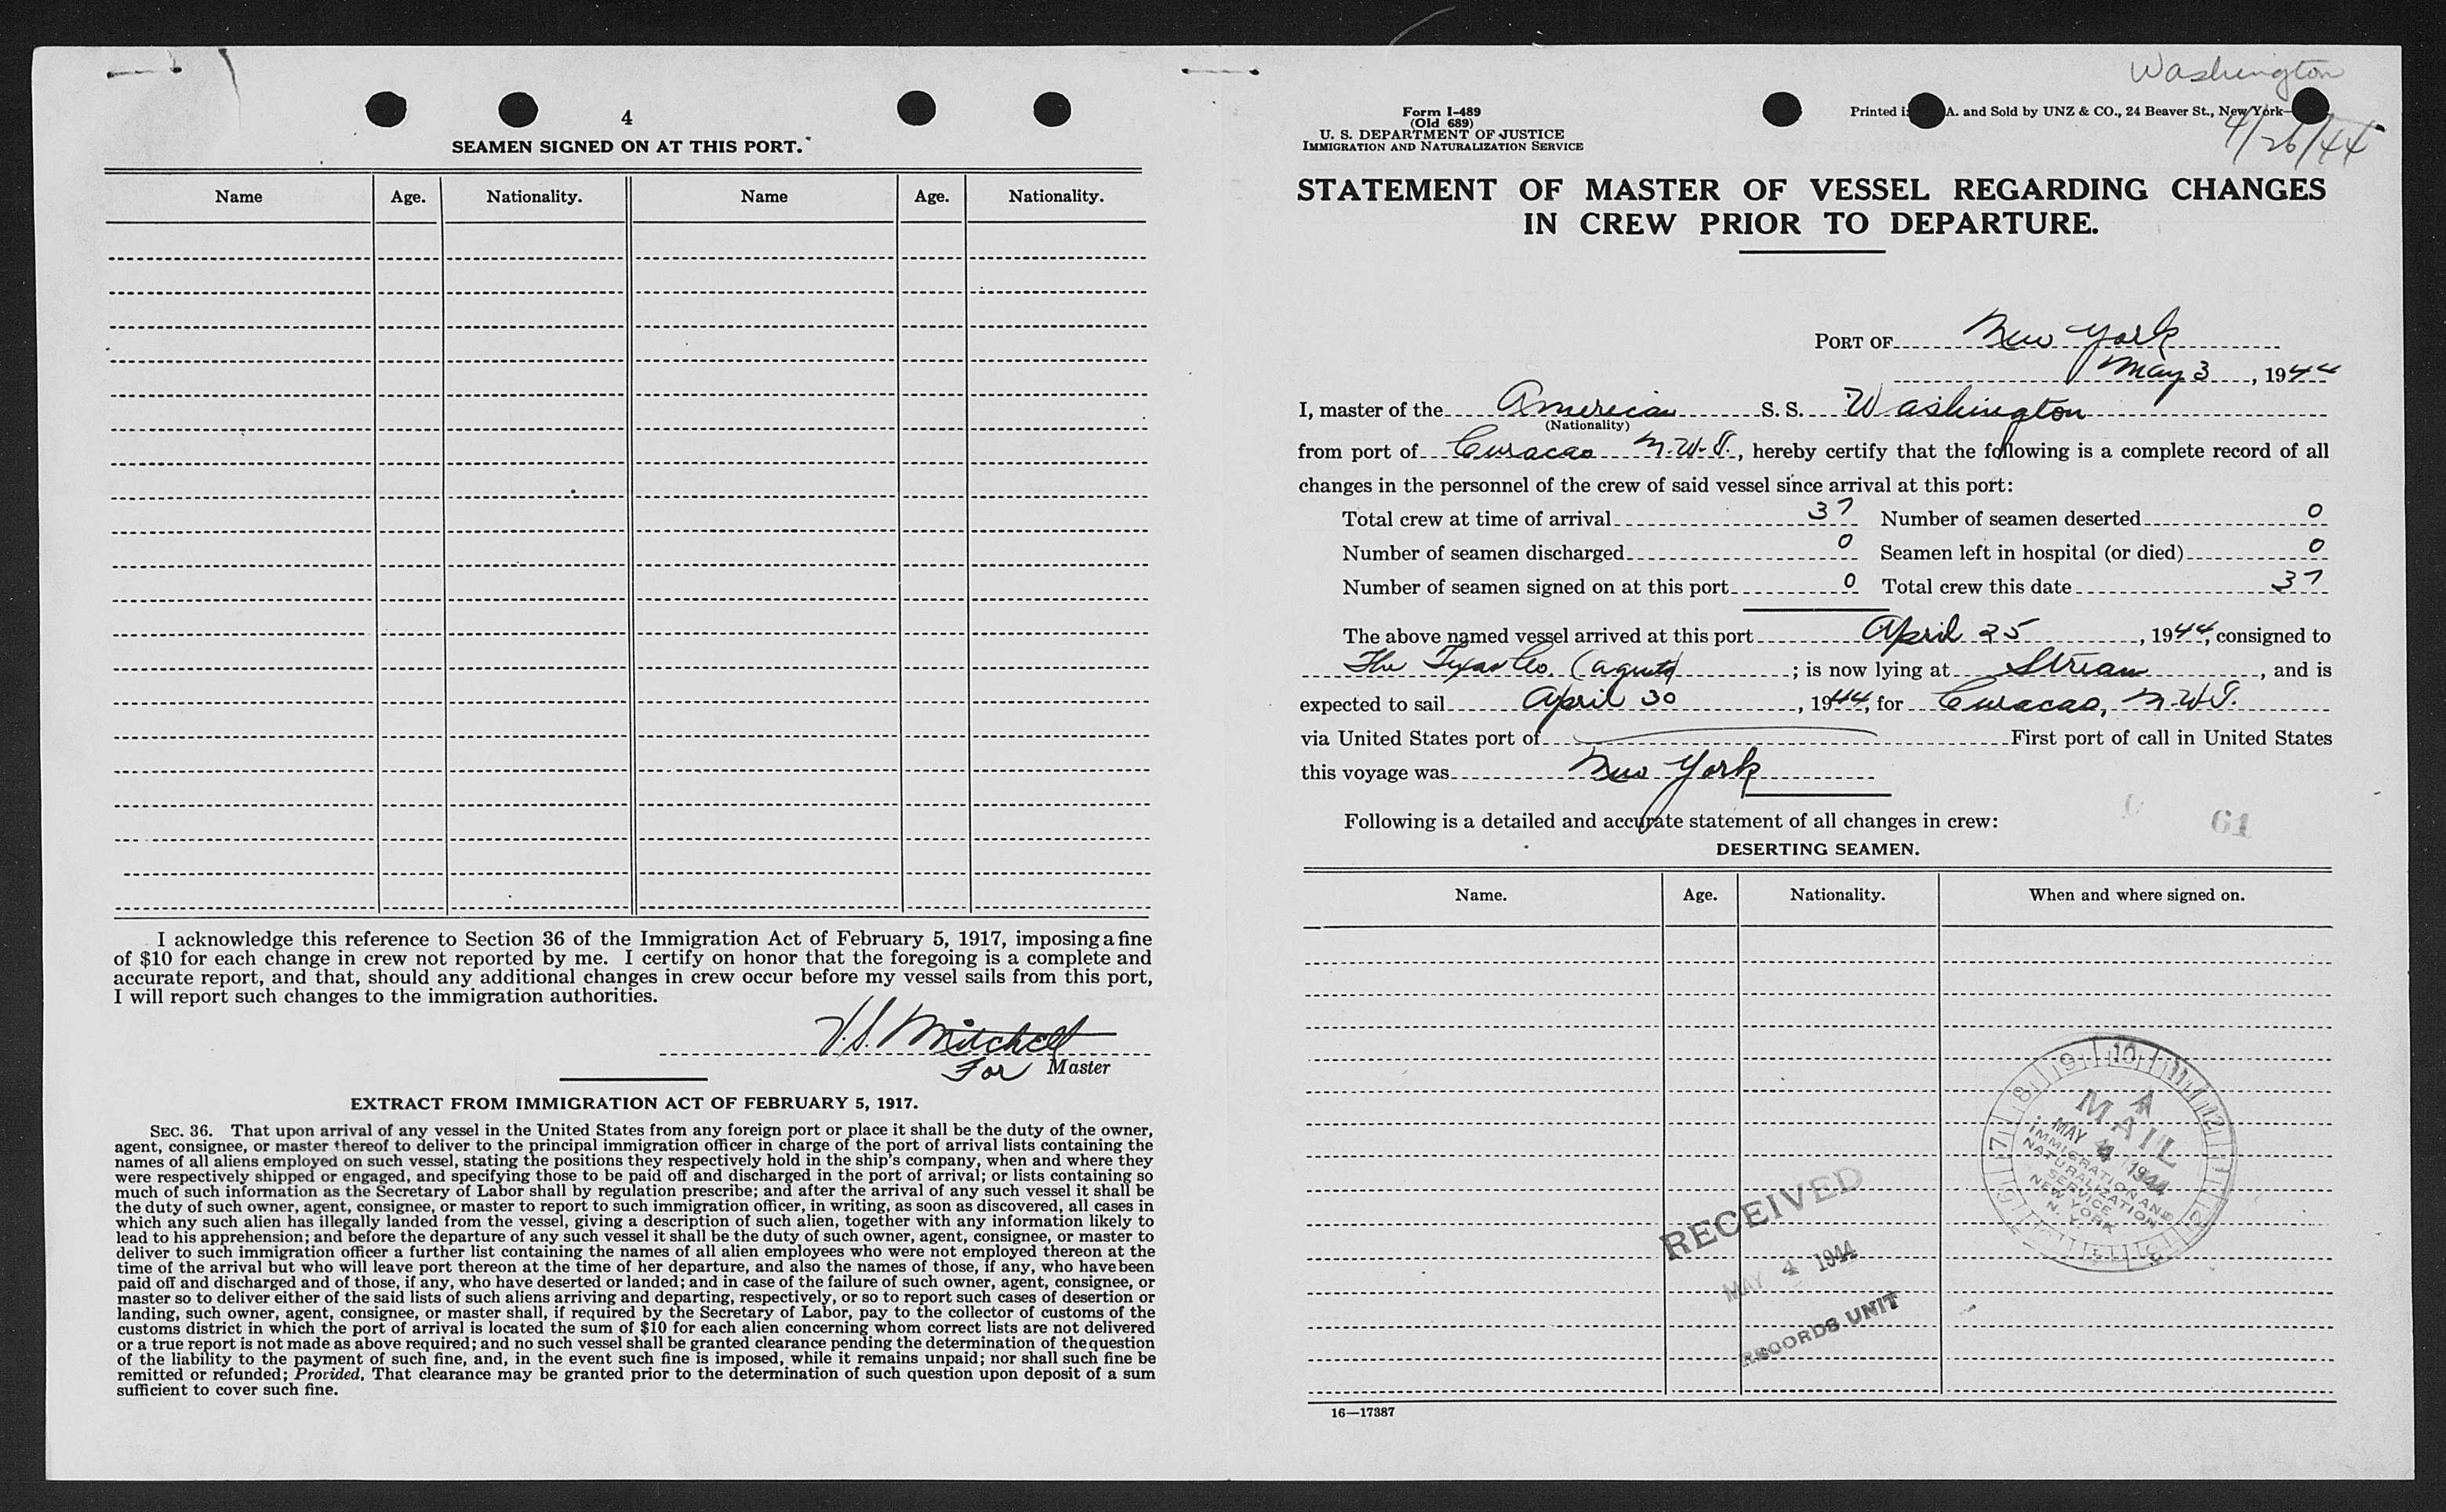 4
SEAMEN SIGNED ON AT THIS PORT.
Name Age. Nationality. Name Age. Nationality.
I acknowledge this reference to Section 36 of the Immigration Act of February 5, 1917, imposing a fine
of $10 for each change in crew not reported by me. I certify on honor that the foregoing is a complete and
accurate report, and that, should any additional changes in crew occur before my vessel sails from this port,
I will report such changes to the immigration authorities.
V.S. Mitchell
For Master
EXTRACT FROM IMMIGRATION ACT OF FEBRUARY 5, 1917.
SEC. 36. That upon arrival of any vessel in the United States from any foreign port or place it shall be the duty of the owner,
agent, consignee, or master thereof to deliver to the principal immigration officer in charge of the port of arrival lists containing the
names of all aliens employed on such vessel, stating the positions they respectively hold in the ship's company, when and where they
were respectively shipped or engaged, and specifying those to be paid off and discharged in the port of arrival; or lists containing so
much of such information as the Secretary of Labor shall by regulation prescribe; and after the arrival of any such vessel it shall be
the duty of such owner, agent, consignee, or master to report to such immigration officer, in writing, as soon as discovered, all cases in
which any such alien has illegally landed from the vessel, giving a description of such alien, together with any information likely to
lead to his apprehension; and before the departure of any such vessel it shall be the duty of such owner, agent, consignee, or master to
deliver to such immigration officer a further list containing the names of all alien employees who were not employed thereon at the
time of the arrival but who will leave port thereon at the time of her departure, and also the names of those, if any, who have been
paid off and discharged and of those, if any, who have deserted or landed; and in case of the failure of such owner, agent, consignee, or
master so to deliver either of the said lists of such aliens arriving and departing, respectively, or so to report such cases of desertion or
landing, such owner, agent, consignee, or master shall, if required by the Secretary of Labor, pay to the collector of customs of the
customs district in which the port of arrival is located the sum of $10 for each alien concerning whom correct lists are not delivered
or a true report is not made as above required; and no such vessel shall be granted clearance pending the determination of the question
of the liability to the payment of such fine, and, in the event such fine is imposed, while it remains unpaid; nor shall such fine be
remitted or refunded; Provided, That clearance may be granted prior to the determination of such question upon deposit of a sum
sufficient to cover such fine.
Washington
Form I-489
(Old 689)
U. S. DEPARTMENT OF JUSTICE
IMMIGRATION AND NATURALIZATION SERVICE
Printed i A. and Sold by UNZ & CO., 24 Beaver St., New York
4/26/44
STATEMENT OF MASTER OF VESSEL REGARDING CHANGES
IN CREW PRIOR TO DEPARTURE.
PORT OF New York
May 3, 1944
I, master of the American S. S. Washington
(Nationality)
from port of Curacao N.W.I., hereby certify that the following is a complete record of all
changes in the personnel of the crew of said vessel since arrival at this port:
Total crew at time of arrival 37 Number of seamen deserted 0
Number of seamen discharged 0 Seamen left in hospital (or died) 0
Number of seamen signed on at this port 0 Total crew this date 37
The above named vessel arrived at this port April 25, 1944, consigned to
The Texas Co. (agents); is now lying at Stream, and is
expected to sail April 30, 1944, for Curacao, N.W.I.
via United States port of First port of call in United States
this voyage was New York
61
Following is a detailed and accurate statement of all changes in crew:
DESERTING SEAMEN.
Name. Age. Nationality. When and where signed on.
A
MAIL
MAY 4 1944
IMMIGRATION AND
NATURALIZATION
SERVICE
NEW YORK
N. Y.
RECEIVED
MAY 4 1944
RECORDS UNIT
16—17387